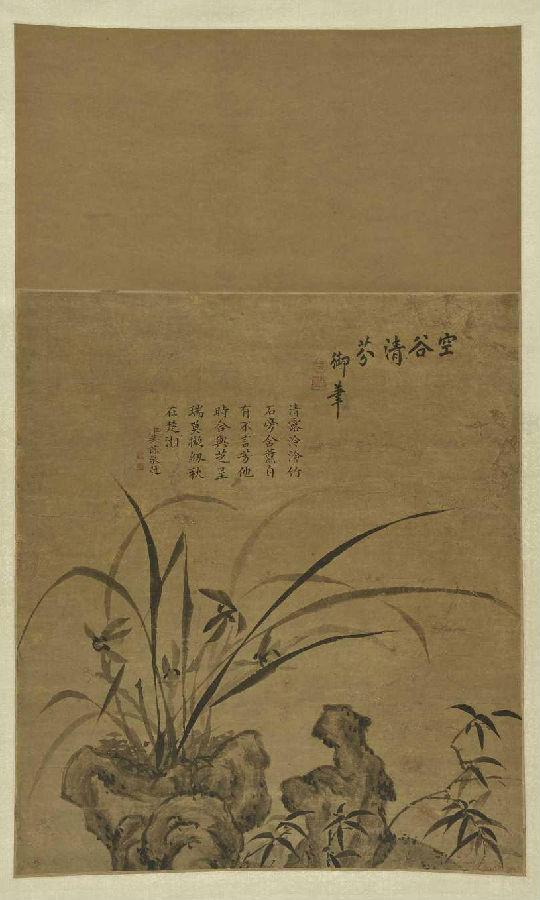 空谷清芬
御筆
清露泠泠竹
石旁含薰自
有不言芳他
時合與芝呈
瑞莫擬紉秋
在楚湘